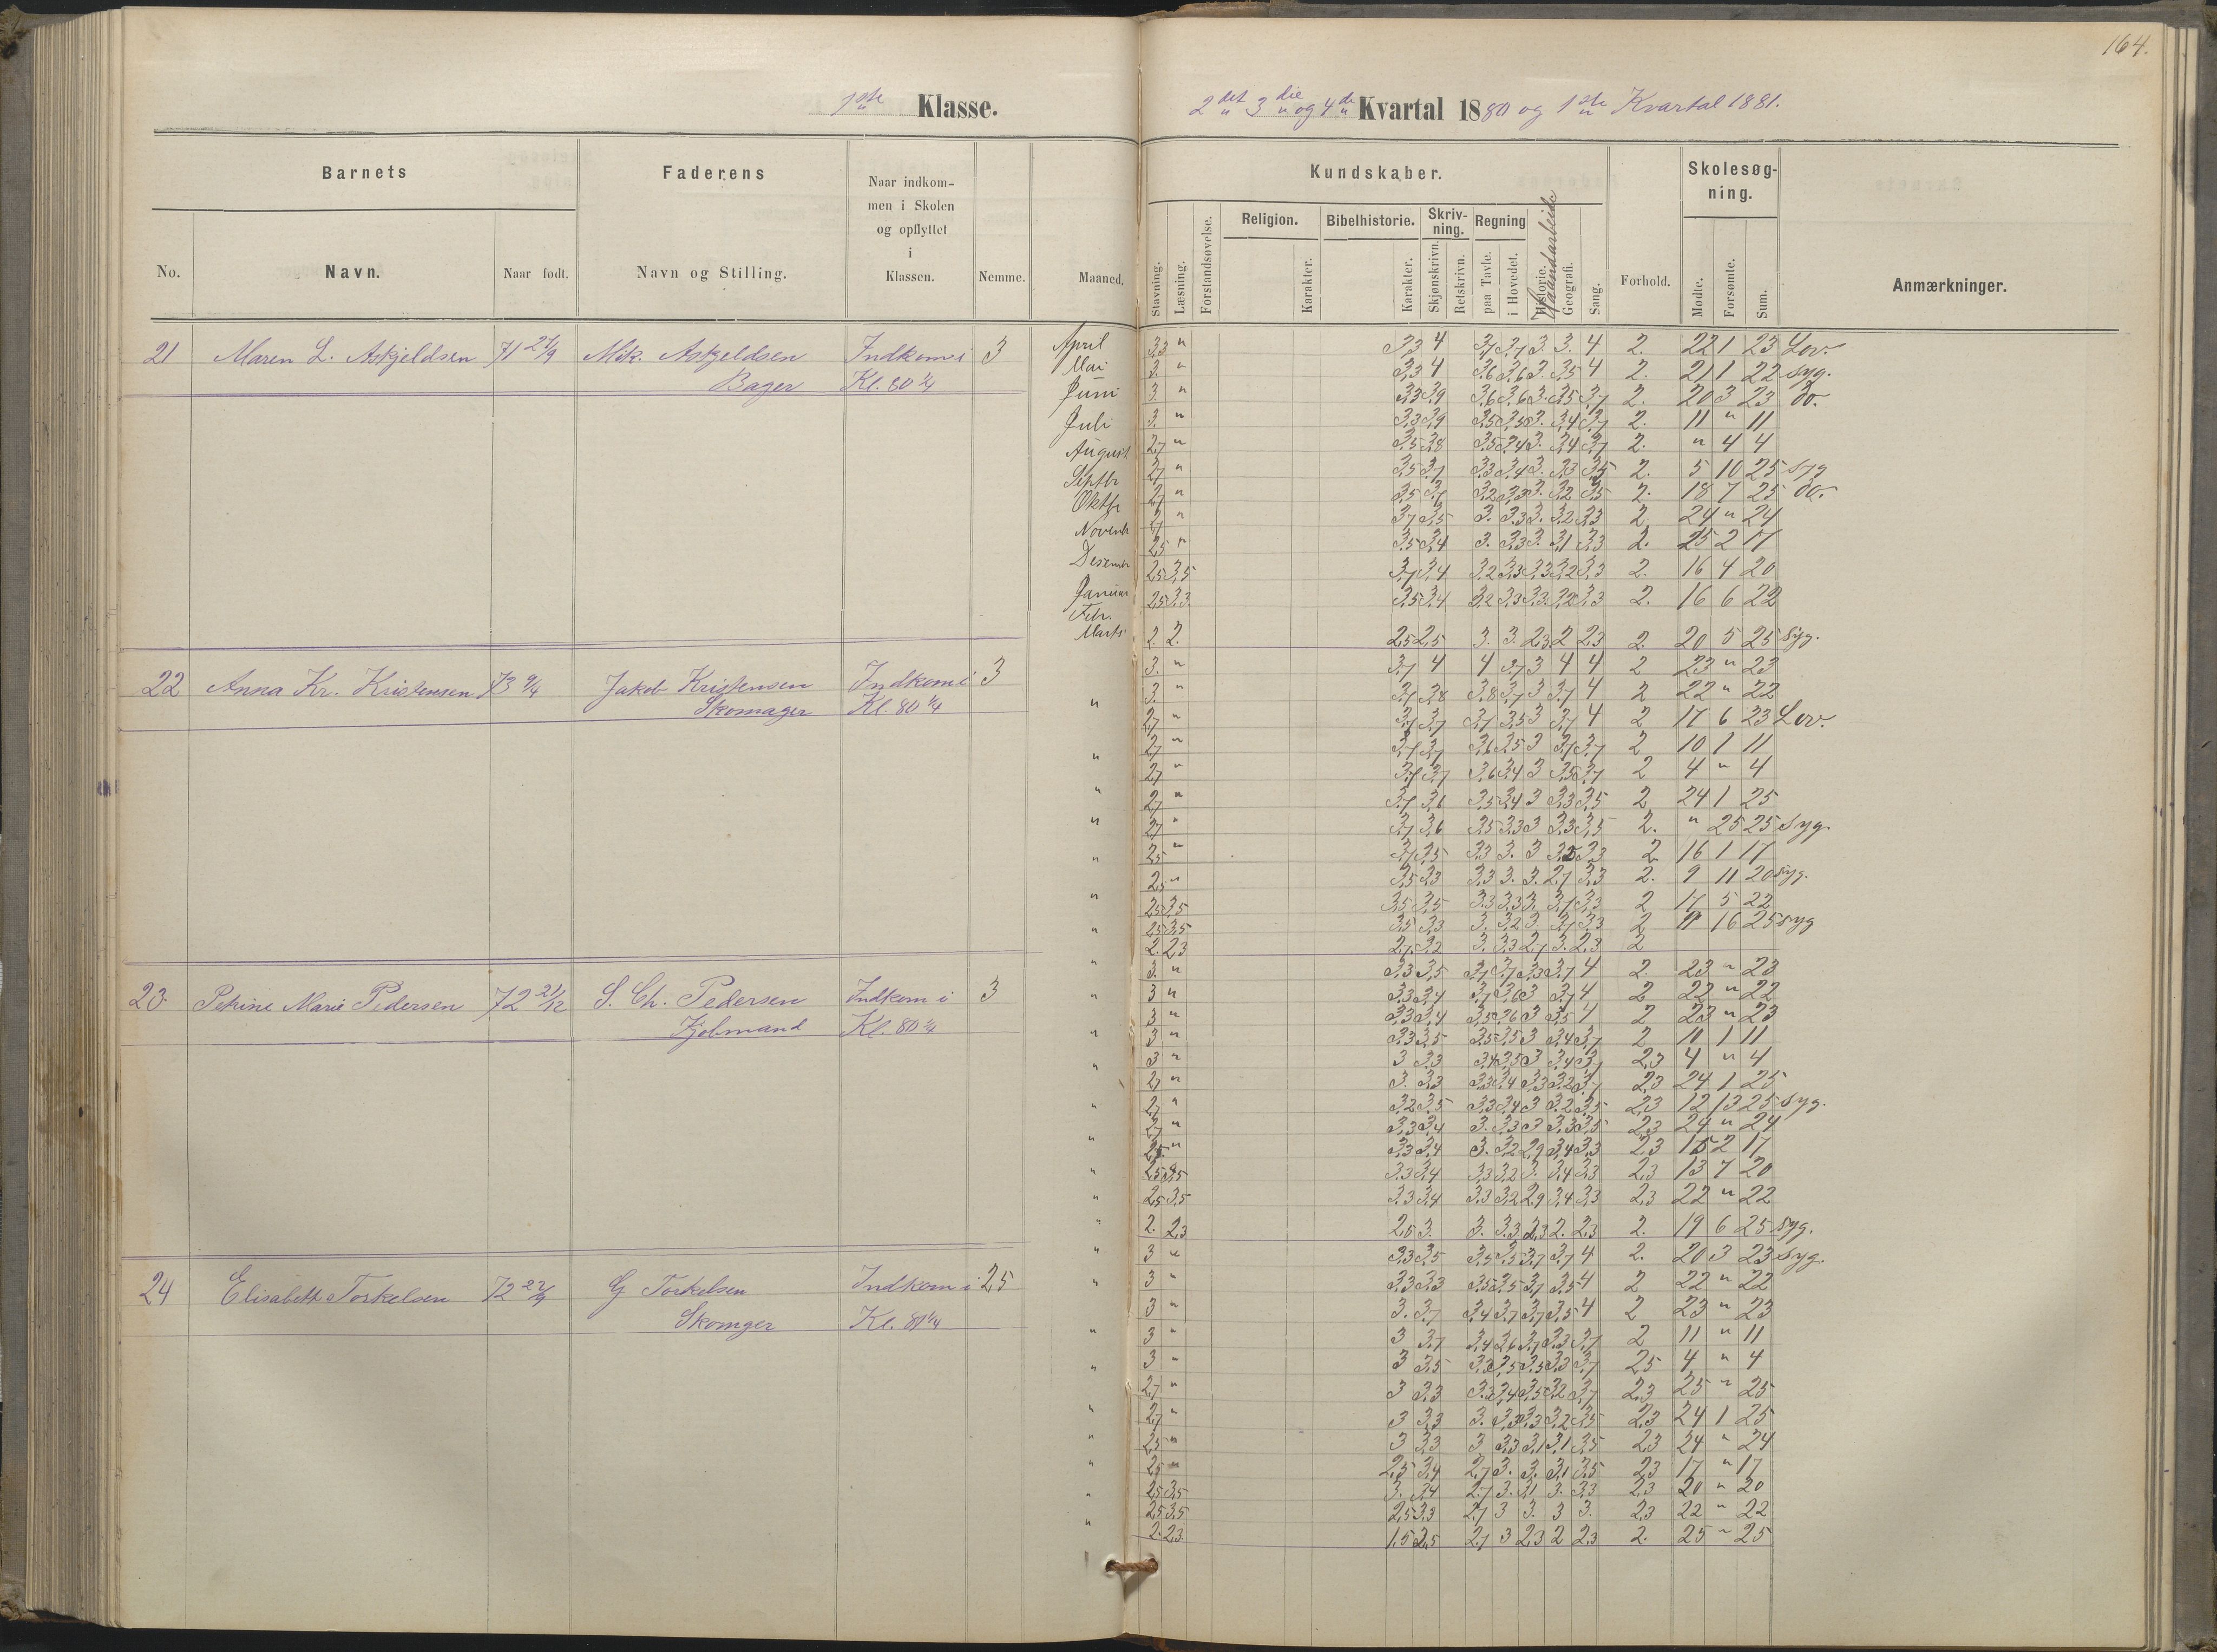 164.
1ste Klasse.
2det 3die og 4de Kvartal 1880 og 1ste Kvartal 1881.
Barnets
Faderens
Naar indkom-
men i Skolen
og opflyttet
i
Klassen.
No.
Navn.
Naar født.
Navn og Stilling.
Nemme.
Maaned.
Kundskaber.
Skolesøg-
ning.
Stavning.
Læsning.
Forstandsøvelse.
Religion.
Bibelhistorie.
Skriv-
ning.
Regning
Karakter.
Karakter.
Skjønskrivn.
Retskrivn.
paa Tavle.
i Hovedet.
Historie.
Haandarbeide
Geografi.
Sang.
Forhold.
Mødte.
Forsømte.
Sum.
Anmærkninger.
21 Maren L. Askjeldsen 71 Mik. Askjeldsen Indkom i 3
Bager Kl. 80 1/4
April 4 3. 3. 4 2. 22 1 23 Lov.
Mai 3. " 4 4 2. 21 1 22 syg.
Juni 3. " 2. 20 3 23 do.
Juli 3. " 2. 11 " 11
August 2,7 " 2. " 4 4
Septbr 2,7 " 2. 5 10 25 syg
Oktbr 2,7 " 2. 18 7 25 do.
Novembr 2,7 " 2. 24 " 24
Desembr 2,5 " 2. 25 2 17
Januar 2,5 3,5 2. 16 4 20
Febr. 2,5 3,3 2. 16 6 22
Marts 2. 2. 2,5 2,5 3. 3. 2,3 2 2,3 2. 20 5 25 syg.
22 Anna Kr. Kristensen 73 9/4 Jakob Kristensen Indkom i 3
Skomager Kl. 80 1/4
3. " 3,7 4 4 3,7 3 4 4 2 23 " 23
3. " 3,7 3,8 3,8 3,7 3 3,7 4 2 22 " 22
2,7 " 3,7 3,7 3,7 3,5 3 3,7 4 2 17 6 23 Lov.
2,7 " 3,7 3,7 3,6 3,5 3 3,7 3,7 2 10 1 11
2,7 " 3,7 3,7 3,6 3,4 3 3,5 3,7 2 4 " 4
2,7 " 3,5 3,4 3 3,3 3,5 2 24 1 25
2,7 " 3,7 3,6 3,5 3,3 3 3,3 3,5 2. " 25 25 syg.
2,5 " 3,7 3,5 3,3 3. 3 2 16 1 17
2,5 " 3,5 3,3 3,3 3. 3. 2,7 3,3 2. 9 11 20 syg.
2,5 3,5 3,5 3,5 3,3 3,3 3. 3,1 3,3 2 17 5 22
2,5 3,5 3,5 3,3 3. 3,2 3 2 16 25 syg
2. 2,3 2,7 3,2 3. 3,3 2,7 3. 2,3 2
23. Petrine Marie Pedersen 72 21/12 S. Ch. Pedersen Indkom i 3
Kjøbmand Kl. 80 1/4
3. " 3,3 3,5 3,7 3,7 3,3 3,7 4 2. 23 " 23
3 " 3,3 3,4 3,7 3,6 3 3,7 4 2 22 " 22
3 " 3,3 3,4 3,5 3,6 3 3,5 4 2 23 " 23
3 " 3,3 3,5 3,5 3,5 3 3,4 3,7 2 10 1 11
3 " 3 3,3 3,4 3,5 3 3,4 3,7 2,3 4 " 4
2,7 " 3. 3,3 3,3 3,4 3,3 3,2 3,7 2,3 24 1 25
2,7 " 3,2 3,5 3,3 3,4 3 3,2 3,5 2,3 12 13 25 syg.
2,7 " 3,3 3,4 3. 3,3 3 3,3 3,5 2,3 24 " 24
" 3,3 3,4 3. 3,2 2,9 3,4 3,3 2,3 15 2 17
2,5 3,5 3,3 3,4 3,3 3,2 3. 3,4 3,3 2,3 13 7 20
2,5 3,5 3,3 3,4 3,3 3,2 2,9 3,4 3,3 2,3 22 " 22
2. 2,3 2,5 3. 3. 3,3 2,3 2. 2,3 2. 19 6 25 syg.
24 Elisabeth Torkelsen 72 G Torkelsen Indkom i 2,5
Skomger Kl. 80 1/4
3 " 3,3 3,5 3,5 3,5 3,7 3,7 4 2. 20 3 23 syg.
3 " 3,3 3,3 3,5 3,5 3,7 3,5 4 2 22 " 22
3 " 3. 3,7 3,4 3,7 3,7 3,5 4 2 23 " 23
3 " 3 3,7 3,4 3,6 3,7 3,3 3,7 2 11 " 11
3 " 3 3,5 3,5 3,5 3,3 3,7 2,5 4 " 4
2,7 " 3 3,3 3,4 3,5 3,2 3,7 2,3 25 " 25
2,7 " 3 3,3 3. 3,3 3,3 3,2 3,5 2,3 24 1 25
2,5 " 3 3,3 3 3,3 3,1 3,1 3,5 2,3 24 " 24
2,5 " 2,5 3,4 2,7 3. 3. 3,1 3,5 2,3 17 " 17
2,5 3,5 3. 3,4 2,7 3. 3,1 3. 3,3 2,3 20 " 20
2,5 3,5 2,5 3,3 2,7 3 3. 3 3. 2,3 22 " 22
2. 2,3. 1,5 2,5 2,7 3 2,3 2 2,3 2. 25 " 25